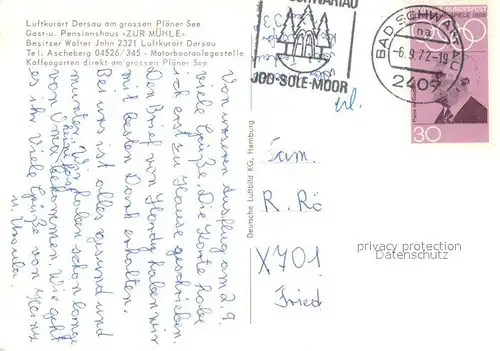 Luftkurort Dersau am grossen Plöner See
Gast-u. Pensionshaus »ZUR MÜHLE«
Besitzer Walter John 2321 Luftkurort Dersau
Tel. Ascheberg 04526/345 - Motorbootanlegestelle
Kaffeegarten direkt am grossen Plöner See
Von unserem Ausflug am 2.9.
viele Grüße. Die Karte habe
ich erst zu Hause geschrieben.
Den Brief von Hardy haben wir
mit besten Dank erhalten.
Bei uns ist alles gesund und
munter. Wir haben schon lange
von Omi keine Post bekommen. Wie geht
es ihr. Viele Grüße von Heinz
u. Ursula.
Deutsche Luftbild KG, Hamburg
SCHWARTAU
JOD-SOLE-MOOR
BAD SCHWARTAU
-6.9.72-19
2407
BUNDESPOST
SPIELE 1968
30
Fam.
R. Rö
X701
Fried
privacy protection
Datenschutz